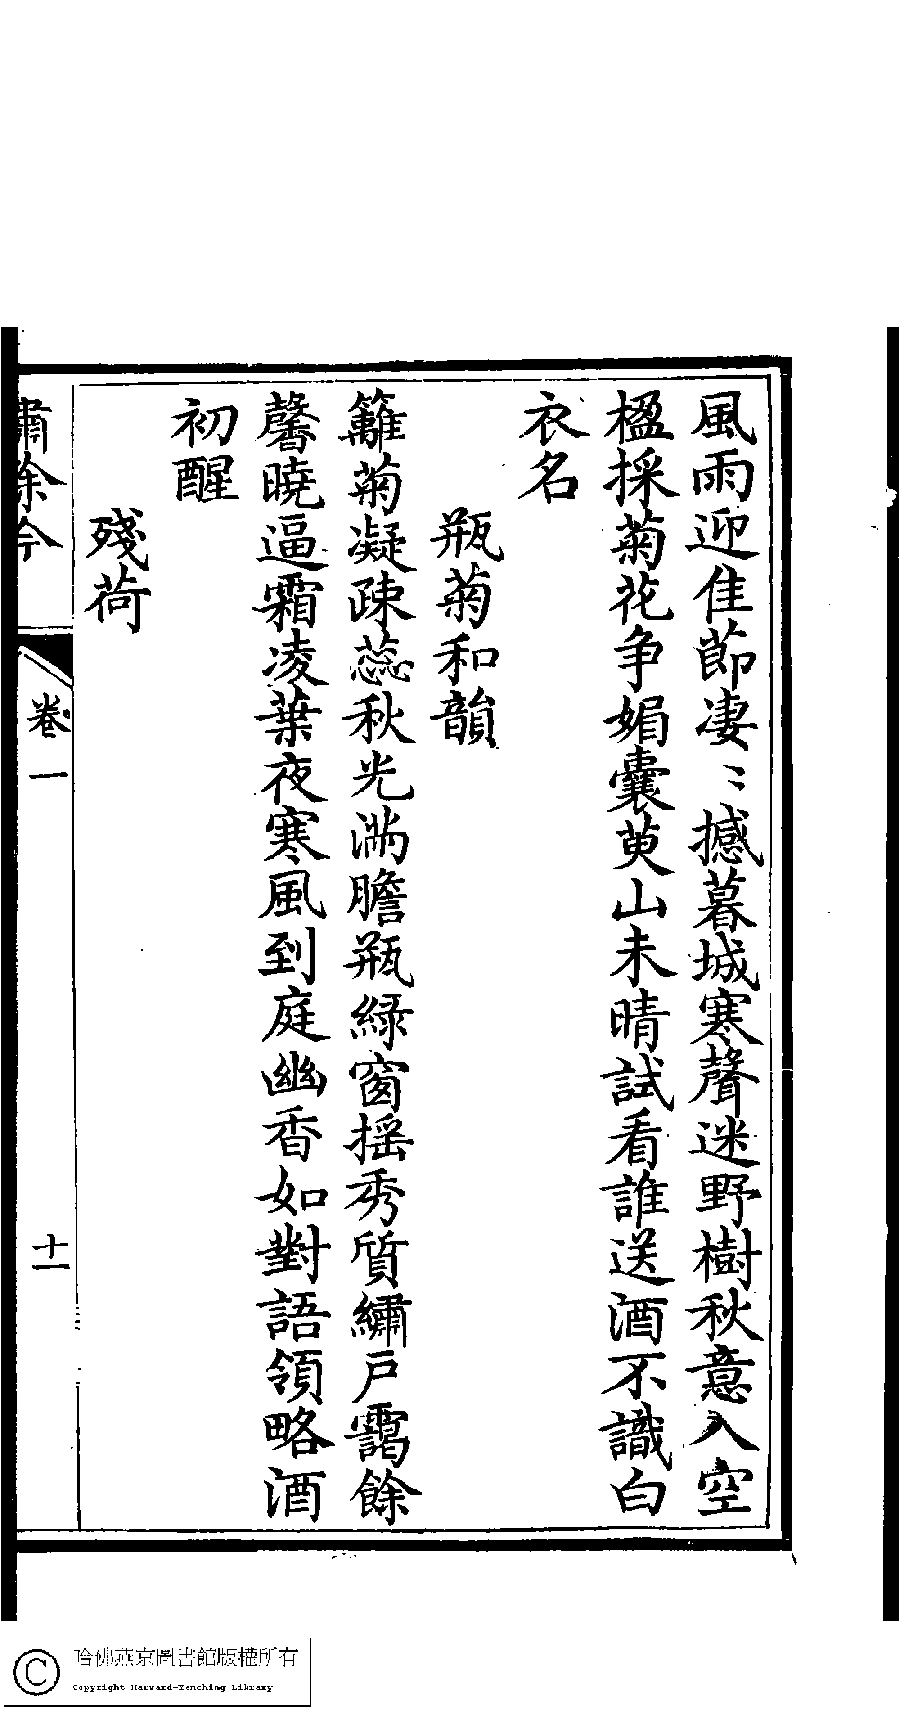 風雨迎佳節凄〻撼暮城寒聲迷野樹秋意入空
楹採菊花争媚囊萸山未晴試看誰送酒不識白
衣名
瓶菊和韻
籬菊凝疎蕊秋光滿膽瓶綠窗揺秀質繡戶靄餘
馨曉逼霜凌葉夜寒風到庭幽香如對語領略酒
初醒
殘荷
繡餘今
卷一
十一
哈佛燕京圖書館版權所有
Copyright Harvard-Yenching Library